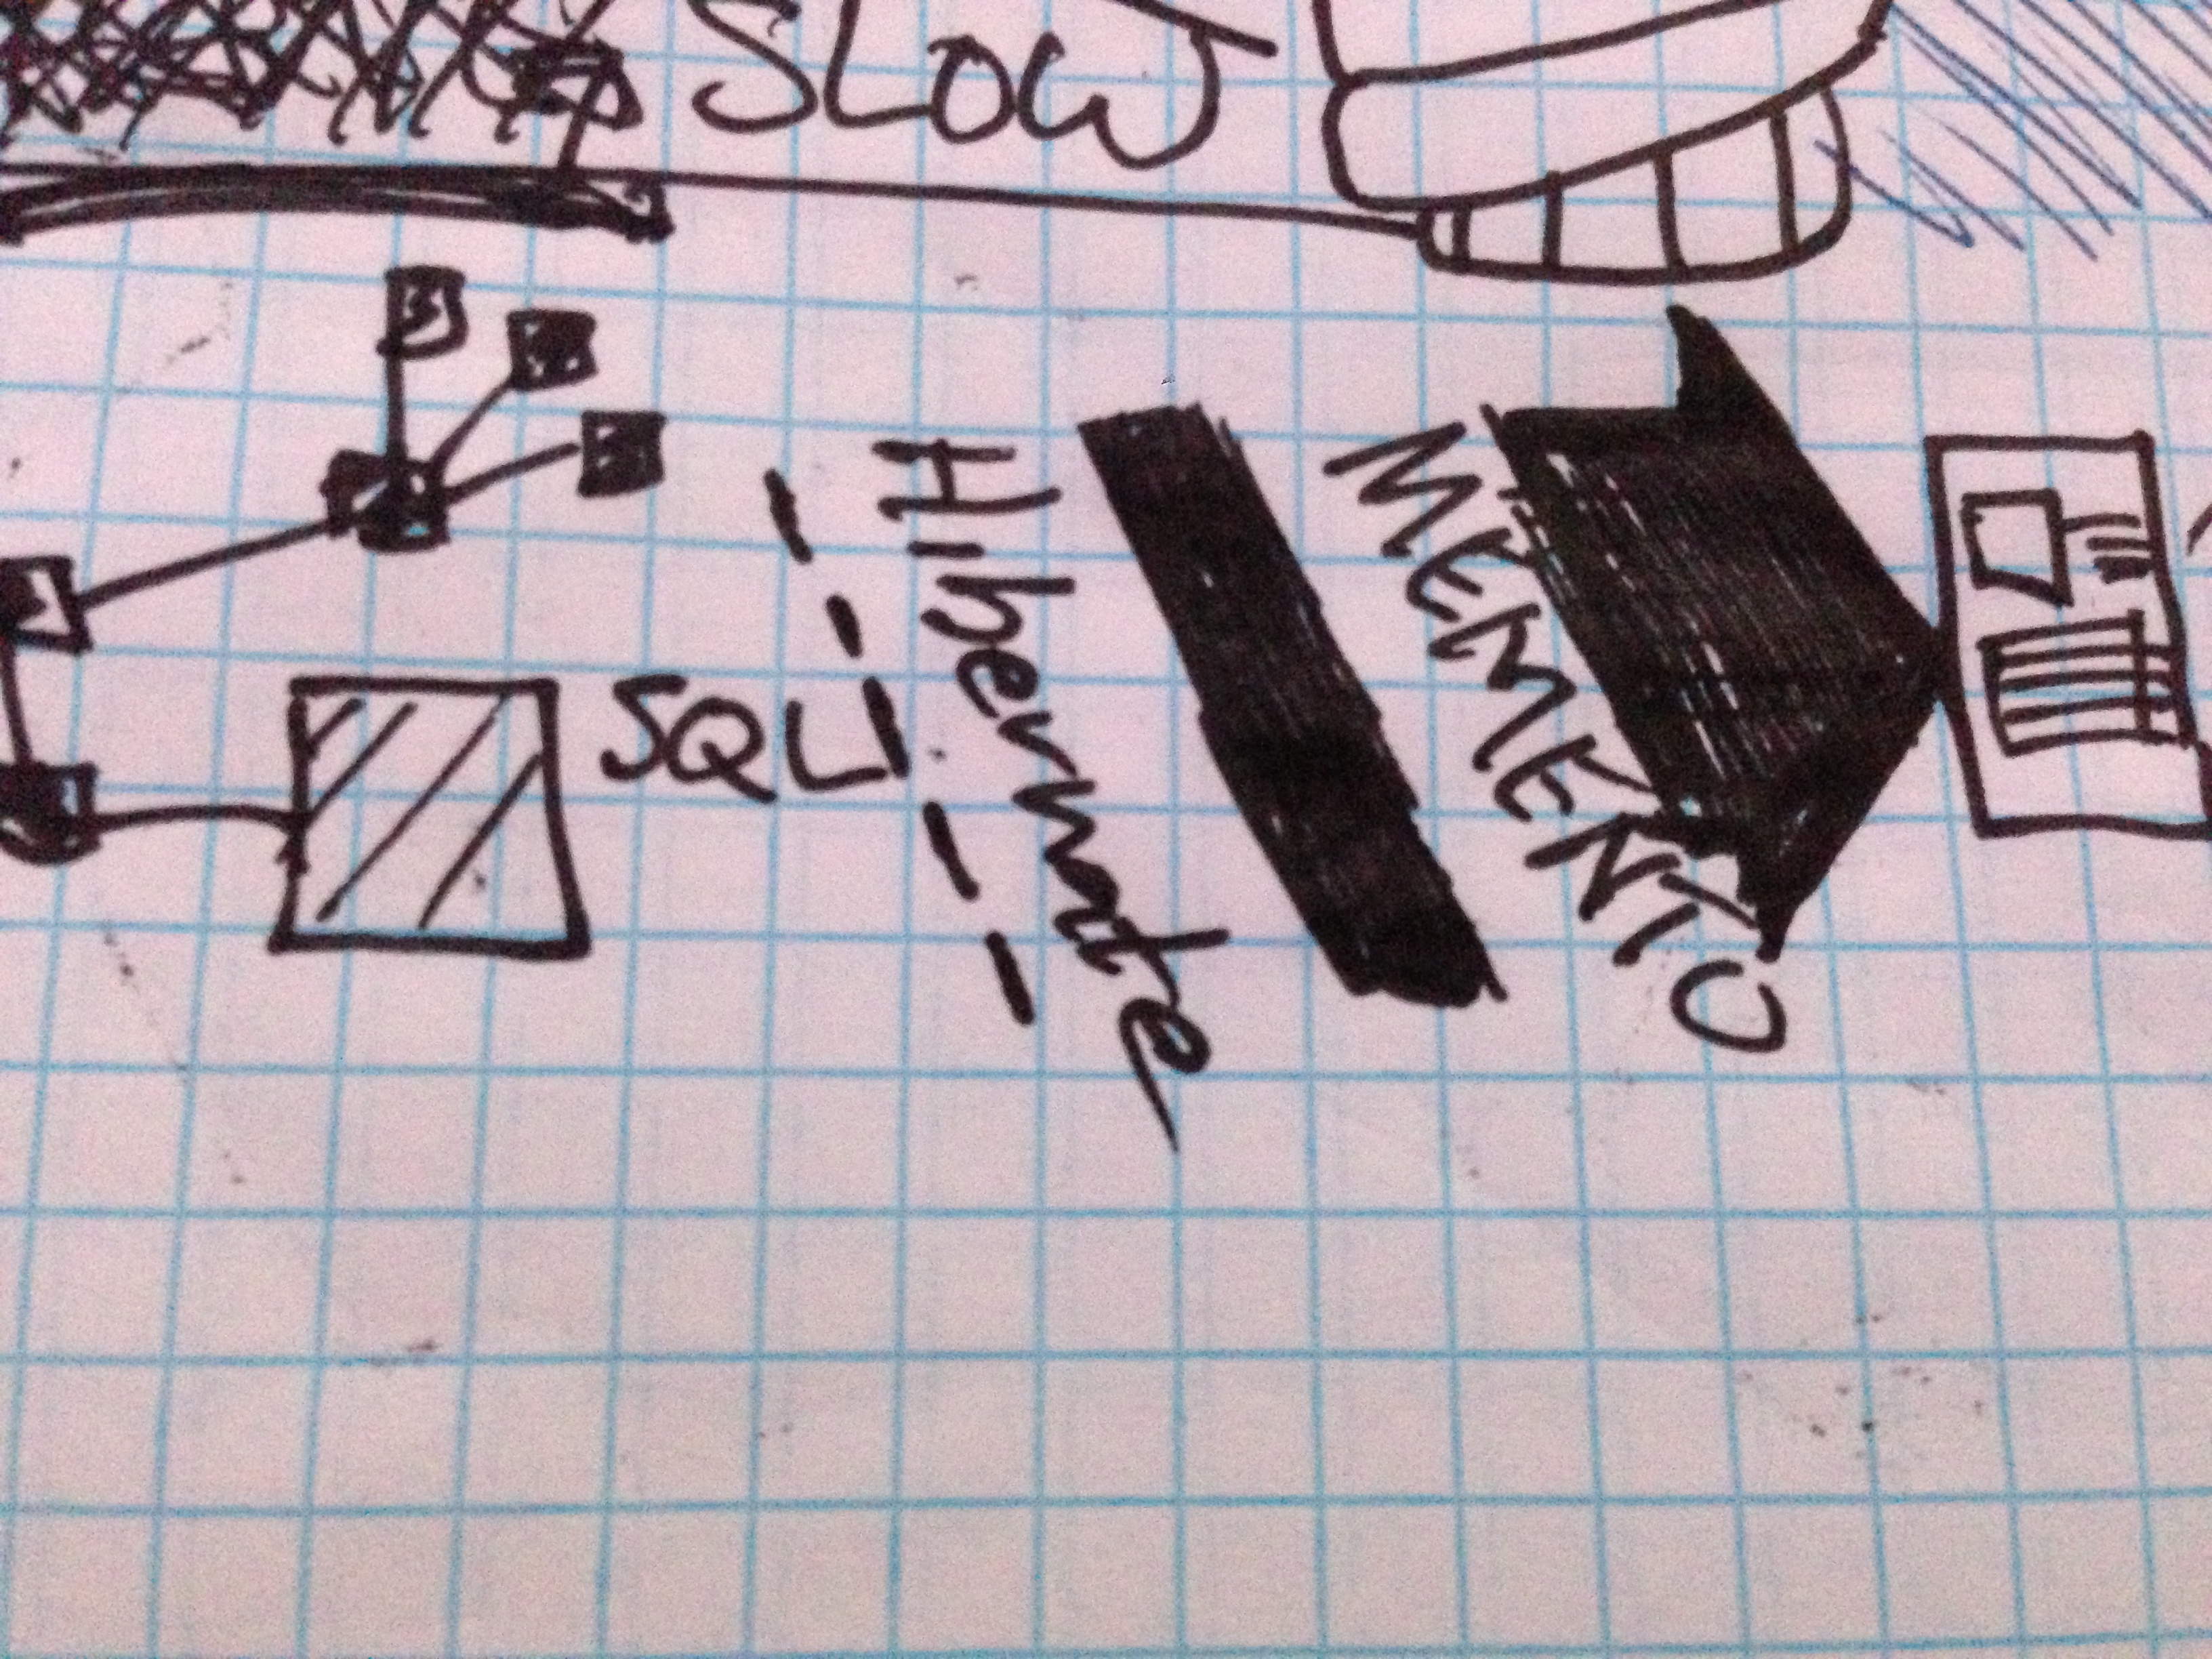 SQL
Hibernate
MEMENTO
SLOW